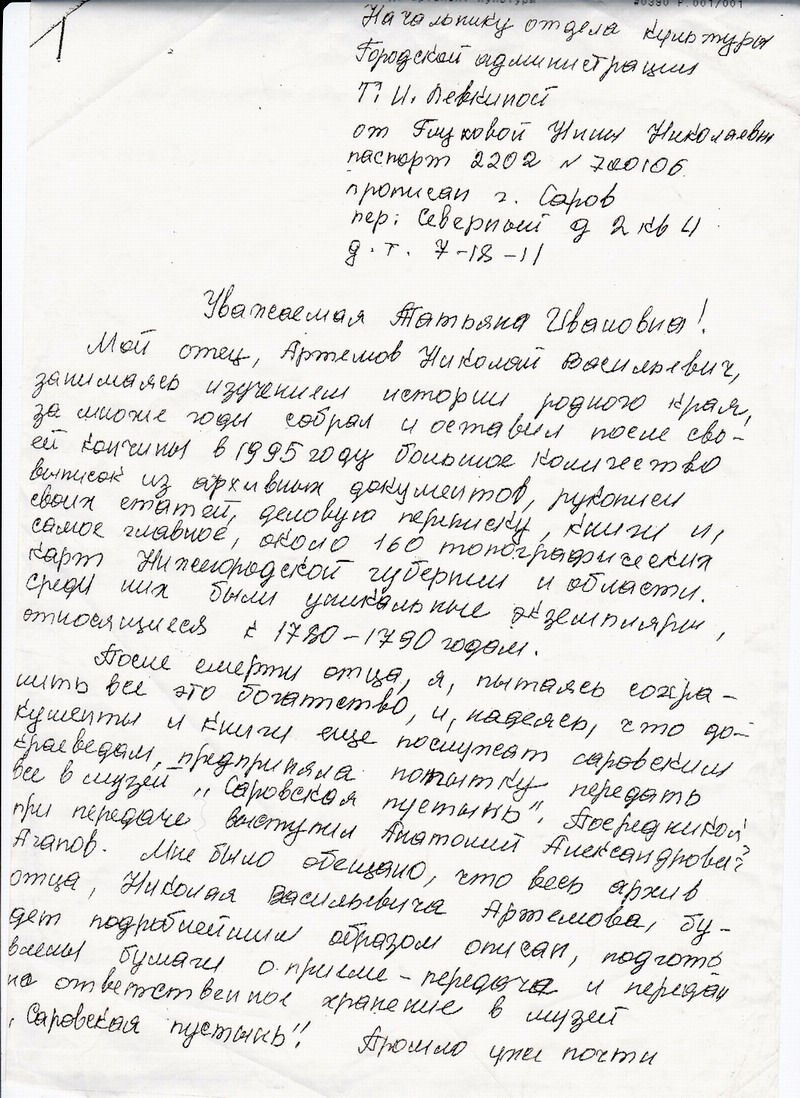 Начальнику отдела культуры
Городской администрации
Т. И. Левкиной
от Глуховой Нины Николаевны
паспорт 2202 № 700106
прописан г. Саров
пер: Северный д 2 кв 4
д. т. 7-18-11
Уважаемая Татьяна Ивановна!
Мой отец, Артемов Николай Васильевич,
занимаясь изучением истории родного края,
за многие годы собрал и оставил после сво-
ей кончины в 1995 году большое количество
выписок из архивных документов, рукописи
своих статей, деловую переписку, книги и,
самое главное, около 160 топографических
карт Нижегородской губернии и области.
Среди них были уникальные экземпляры,
относящиеся к 1780-1790 годам.
После смерти отца, я, пытаясь сохра-
нить все это богатство, и, надеясь, что до-
кументы и книги еще послужат саровским
краеведам, предприняла попытку передать
все в музей „Саровская пустынь". Посредникой
при передаче выступил Анатолий Александрович
Агапов. Мне было обещано, что весь архив
отца, Николая Васильевича Артемова, бу-
дет подробнейшим образом описан, подгото
влены бумаги о приеме-передаче и передан
на ответственное хранение в музей
„Саровская пустынь"! Прошло уже почти